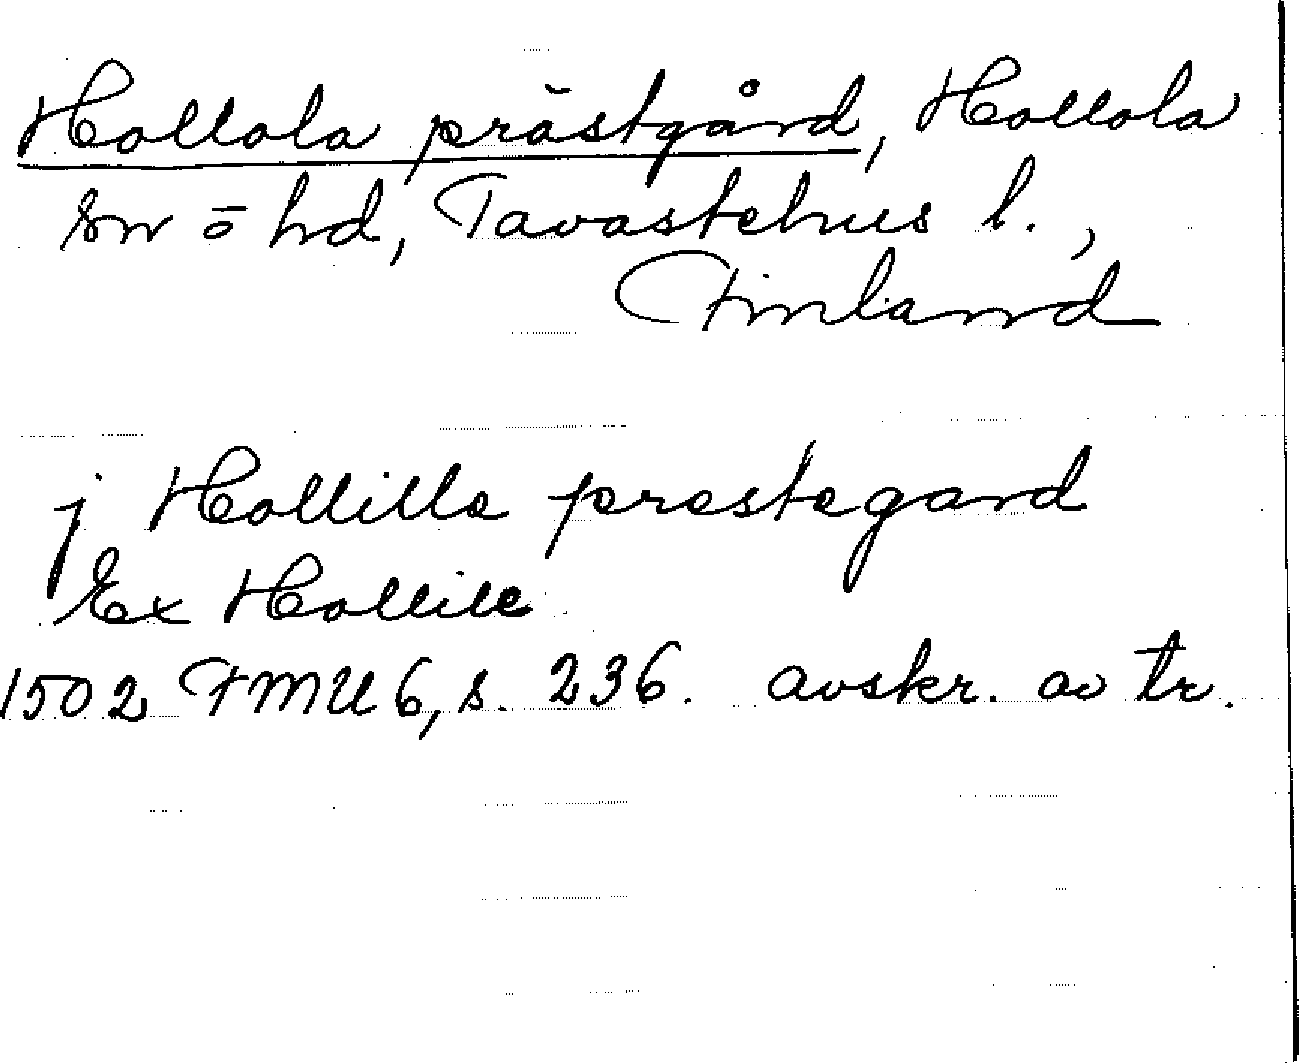 Hollola prästgård, Hollola
sn o hd, Tavastehus l.,
Finland
j Hollille prestegard
Ex Hollile
1502 FMU 6, s. 236. avskr. av tr.